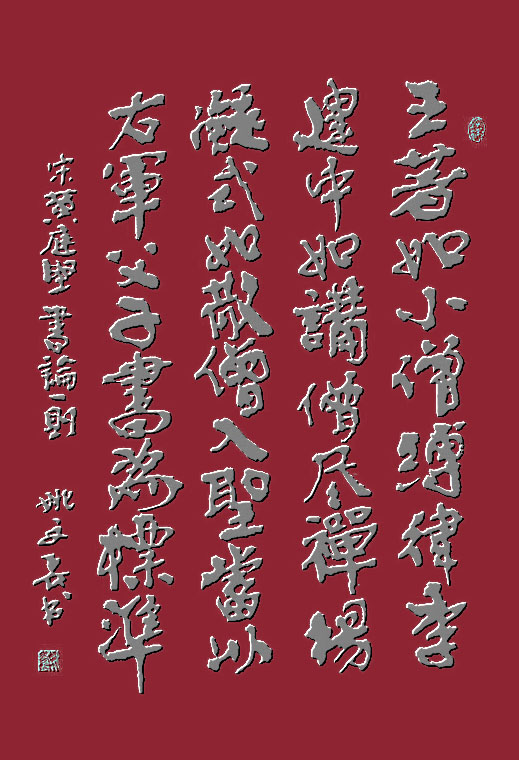 王著如小僧縛律李
建中如講僧參禪楊
凝式如散僧入聖當以
右軍父子書為標準
宋黃庭堅書論一則 姚文书